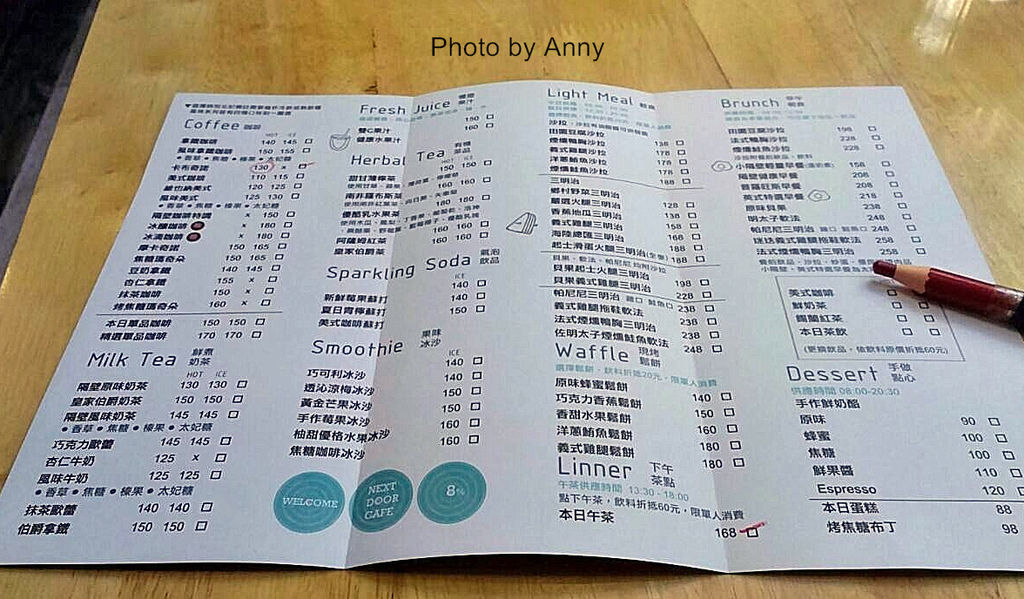 Photo by Anny
Coffee 咖啡
HOT ICE
拿鐵咖啡 140 145
風味拿鐵咖啡 150 155
•香草•焦糖•榛果•太妃糖
卡布奇諾 130
美式咖啡 110 115
維也納美式 120 125
風味美式 125 130
•香草•焦糖•榛果•太妃糖
隔壁咖啡特調 x 150
冰釀咖啡 x 180
冰滴咖啡 x 180
摩卡奇諾 150 165
焦糖瑪奇朵 150 165
豆奶拿鐵 140 145
杏仁拿鐵 155 x
抹茶咖啡 150 x
烤焦糖瑪奇朵 160 x
本日單品咖啡 150 150
精選單品咖啡 170 170
Milk Tea 鮮煮奶茶
HOT ICE
隔壁原味奶茶 130 130
皇家伯爵奶茶 150 150
隔壁風味奶茶 145 145
•香草•焦糖•榛果•太妃糖
巧克力歐蕾 145 145
杏仁牛奶 125 x
風味牛奶 125 125
•香草•焦糖•榛果•太妃糖
抹茶歐蕾 140 140
伯爵拿鐵 150 150
Fresh Juice 慢磨果汁
雙C果汁 150
健康水果汁 160
Herbal Tea 有機茶品
HOT ICE
甜甘薄檸茶 150 150
南非羅布斯茶 160 160
優酪乳水果茶 180 180
阿薩姆紅茶 160 160
皇家伯爵茶 160 160
Sparkling Soda 氣泡飲品
ICE
新鮮莓果蘇打 140
夏日青檸蘇打 140
美式咖啡蘇打 150
Smoothie 果味冰沙
ICE
巧可利冰沙 140
透沁涼梅冰沙 140
黃金芒果冰沙 150
手作莓果冰沙 150
柚甜優格水果冰沙 160
焦糖咖啡冰沙 160
WELCOME
NEXT DOOR CAFE
8%
Light Meal 輕食
田園豆腐沙拉 138
煙燻鴨胸沙拉 168
義式雞腿沙拉 178
洋蔥鮪魚沙拉 188
煙燻鮭魚沙拉 188
三明治
鄉村野菜三明治 128
嚴選火腿三明治 138
香蕉地瓜三明治 138
義式雞腿三明治 158
海陸總匯三明治 168
起士滑蛋火腿三明治 188
貝果起士火腿三明治 198
貝果義式雞腿三明治 228
帕尼尼三明治
義式雞腿拖鞋軟法 238
法式煙燻鴨胸三明治 238
佐明太子煙燻鮭魚軟法 248
Waffle 現烤鬆餅
選擇鬆餅，飲料折抵20元，限單人消費
原味蜂蜜鬆餅 140
巧克力香蕉鬆餅 150
香甜水果鬆餅 160
洋蔥鮪魚鬆餅 180
義式雞腿鬆餅 180
Linner 下午茶點
午茶供應時間 13:30 - 18:00
點下午茶，飲料折抵60元，限單人消費
本日午茶 168
Brunch 早午輕食
田園豆腐沙拉 198
法式鴨胸沙拉 228
煙燻鮭魚沙拉 248
小隔壁輕盈早餐 158
隔壁健康早餐 208
普羅旺斯早餐 208
英式特選早餐 218
原味貝果 238
明太子軟法 248
帕尼尼三明治 248
法式煙燻鴨胸三明治 258
美式咖啡
鮮奶茶
錫蘭紅茶
本日茶飲
(更換飲品，依飲料原價折抵60元)
Dessert 手做點心
供應時間 08:00-20:30
手作鮮奶酪
原味 90
蜂蜜 100
焦糖 100
鮮果醬 110
Espresso 120
本日蛋糕 88
烤焦糖布丁 98